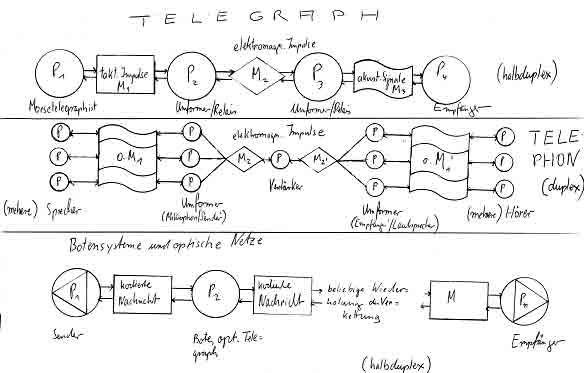 TELEGRAPH
elektromagn. Impulse
P1
takt. Impulse
M1
P2
M2
P3
akust. Signale
M3
P4
(halbduplex)
Morsetelegraphist
Umformer/Relais
Umformer/Relais
Empfänger
elektromagn. Impulse
TELE-
PHON
(duplex)
P
P
P
o. M1
P
P
P
M2
P
M2'
P
P
P
o. M1'
P
P
P
Verstärker
(mehrere) Sprecher
Umformer
(Mikrophon/Sender)
Umformer
(Empfänger/Lautsprecher)
(mehrere) Hörer
Botensysteme und optische Netze
P1
kodierte
Nachricht
P2
kodierte
Nachricht
beliebige Wieder-
holung der Ver-
kettung
M
Pn
Sender
Bote, opt. Tele-
graph
Empfänger
(halbduplex)